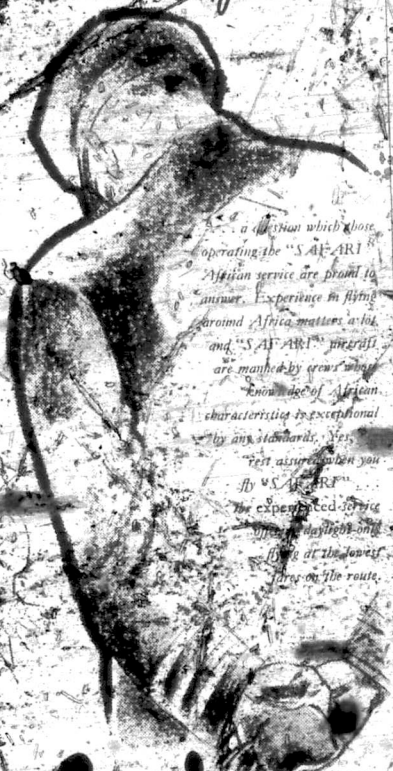 . . . a question which those
operating the "SAFARI"
African service are proud to
answer. Experience in flying
around Africa matters a lot
and "SAFARI" aircraft
are manned by crews whose
knowledge of African
characteristics is exceptional
by any standards. Yes,
rest assured when you
fly "SAFARI"
the experienced service
offering daylight-only
flying at the lowest
fares on the route.